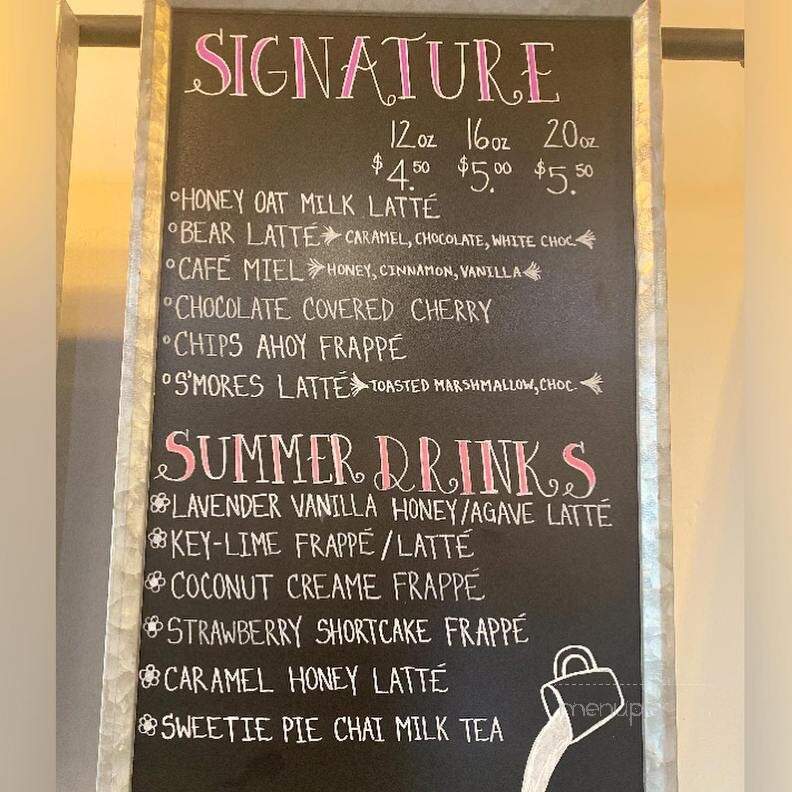 SIGNATURE
12oz 16oz 20oz
$4.50 $5.00 $5.50
°HONEY OAT MILK LATTÉ
°BEAR LATTÉ CARAMEL, CHOCOLATE, WHITE CHOC.
°CAFÉ MIEL HONEY, CINNAMON, VANILLA
°CHOCOLATE COVERED CHERRY
°CHIPS AHOY FRAPPÉ
°S'MORES LATTÉ TOASTED MARSHMALLOW, CHOC.
SUMMER DRINKS
LAVENDER VANILLA HONEY/AGAVE LATTÉ
KEY-LIME FRAPPÉ/LATTÉ
COCONUT CREAME FRAPPÉ
STRAWBERRY SHORTCAKE FRAPPÉ
CARAMEL HONEY LATTÉ
SWEETIE PIE CHAI MILK TEA